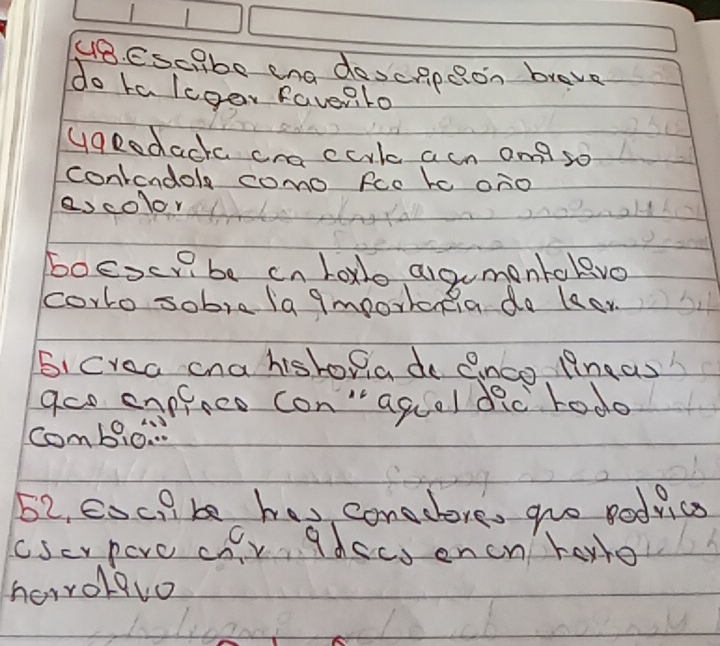 48. Escribe una descripción breve
de tu lugar favorito
49 Redacta una carta a un amigo
contandole como fue tu año
escolar
50 Escribe un texto argumentativo
corto sobre la importancia de leer
51 Crea una historia de cinco lineas
que enpiece con "aquel dia todo
cambio..."
52. Escribe tres conectores que podrias
usar para unir ideas en un texto
narrativo